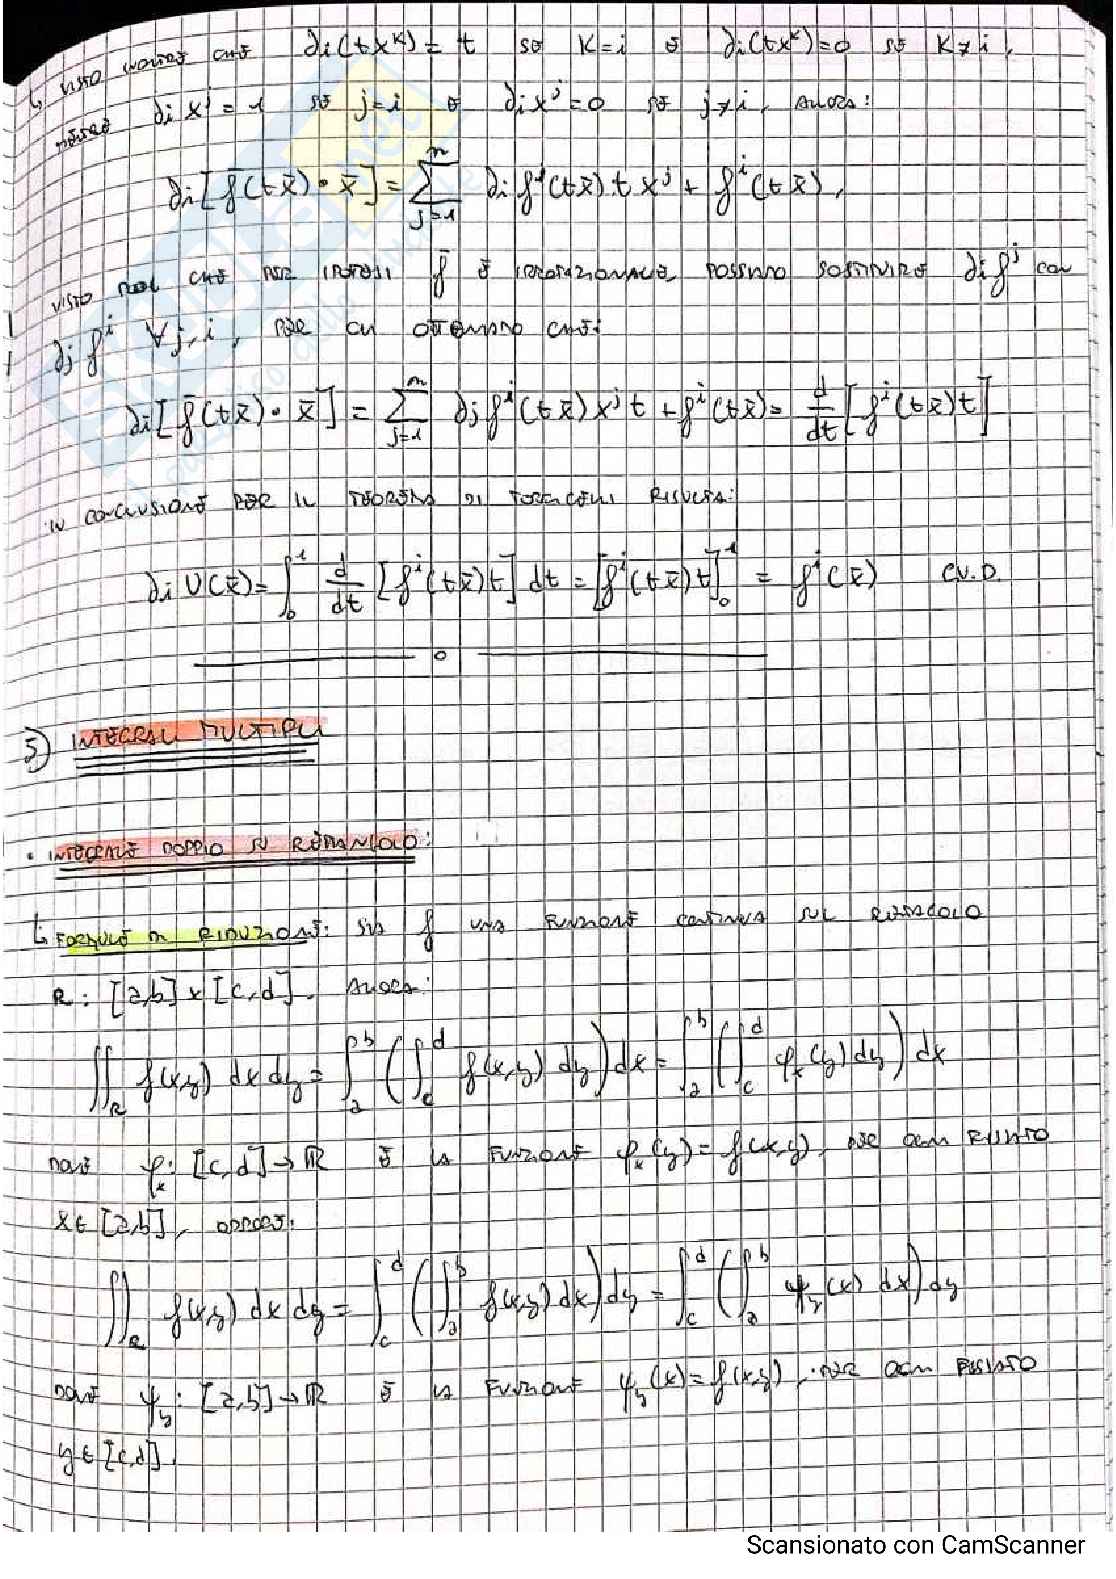 ↳ VISTO INOLTRE CHE ∂i(txᴷ) = t SE K=i E ∂i(txᴷ)=0 SE K≠i,
MENTRE ∂i xʲ = 1 SE j=i E ∂i xʲ=0 SE j≠i, ALLORA:
∂i[f̄(tx̄)·x̄] = ∑ⁿⱼ₌₁ ∂i fʲ(tx̄) t xʲ + fⁱ(tx̄),
VISTO POI CHE PER IPOTESI f̄ È IRROTAZIONALE, POSSIAMO SOSTITUIRE ∂i fʲ CON
∂j fⁱ ∀j,i, PER CUI OTTENIAMO CHE:
∂i[f̄(tx̄)·x̄] = ∑ⁿⱼ₌₁ ∂j fⁱ(tx̄) xʲ t + fⁱ(tx̄) = d/dt [fⁱ(tx̄)t]
IN CONCLUSIONE PER IL TEOREMA DI TORRICELLI RISULTA:
∂i U(x̄) = ∫₀¹ d/dt [fⁱ(tx̄)t] dt = [fⁱ(tx̄)t]₀¹ = fⁱ(x̄) C.V.D.
o
5) INTEGRALI MULTIPLI
• INTEGRALE DOPPIO SU RETTANGOLO:
↳ FORMULE DI RIDUZIONE: SIA f UNA FUNZIONE CONTINUA SUL RETTANGOLO
R: [a,b] x [c,d]. ALLORA:
∬_R f(x,y) dx dy = ∫ₐᵇ (∫_c^d f(x,y) dy) dx = ∫ₐᵇ (∫_c^d φₓ(y) dy) dx
DOVE φₓ: [c,d] → ℝ È LA FUNZIONE φₓ(y) = f(x,y), PER OGNI FISSATO
x∈[a,b], OPPURE:
∬_R f(x,y) dx dy = ∫_c^d (∫ₐᵇ f(x,y) dx) dy = ∫_c^d (∫ₐᵇ ψ_y(x) dx) dy
DOVE ψ_y: [a,b] → ℝ È LA FUNZIONE ψ_y(x) = f(x,y), PER OGNI FISSATO
y∈[c,d].
Scansionato con CamScanner